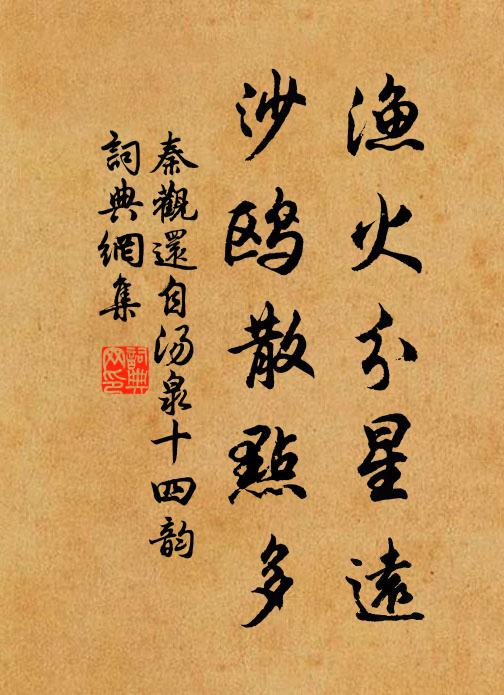 渔火分星遠
沙鸥散點多
秦觀還自汤泉十四韵
詞典網集
詞典网印